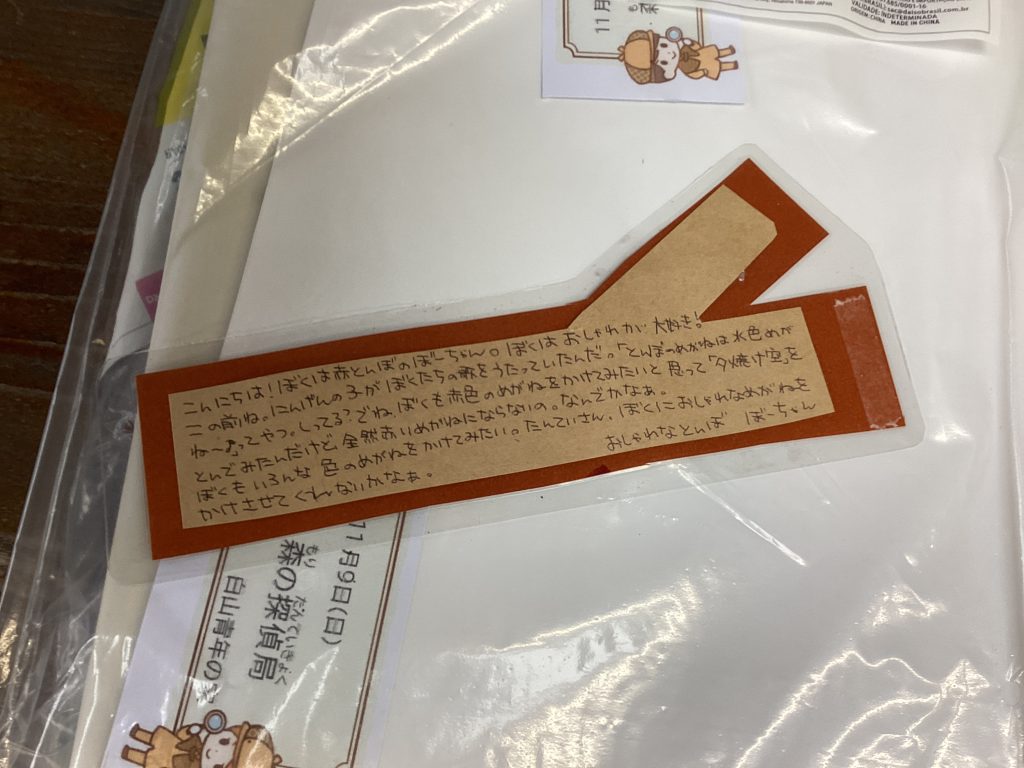 VALIDADE: INDETERMINADA
MADE IN CHINA
11月
も
森
こんにちは!ぼくは赤とんぼのぼーちゃん。ぼくはおしゃれが大好き!
この前ね。にんげんの子がぼくたちの歌をうたっていたんだ。「とんぼーのめがねは水色めが
ね〜♪」ってやつ。しってる?でね、ぼくも赤色のめがねをかけてみたいと思って「夕焼け空を
とんでみたんだけど、全然あかいめがねにならないの。なんでかなぁ。
ぼくもいろんな色のめがねをかけてみたい。たんていさん、ぼくにおしゃれなめがねを
かけさせてくれないかなぁ。
おしゃれなとんぼ ぼーちゃん
11月9日(日)
もり たんていきょく
森の探偵局
白山青年の